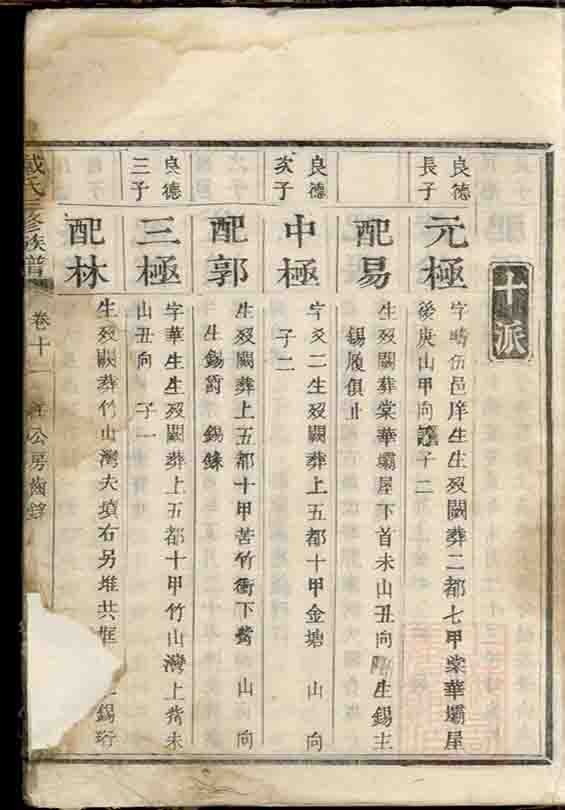 十派
良德
長子
元極
字疇伍邑庠生生歿闕葬二都七甲棠華壩屋
後庚山甲向 子二
配易
生歿闕葬棠華壩屋下首未山丑向 生錫主
錫履俱止
良德
次子
中極
字爻二生歿闕葬上五都十甲金塘 山 向
子二
配郭
生歿闕葬上五都十甲苦竹衝下 山 向
生錫爵 錫錄
良德
三子
三極
字華生生歿闕葬上五都十甲竹山灣上 未
山丑向 子一
配林
生歿闕葬竹山灣夫墳右另堆共 生錫珩
戴氏三修族譜 卷十 公房齒錄